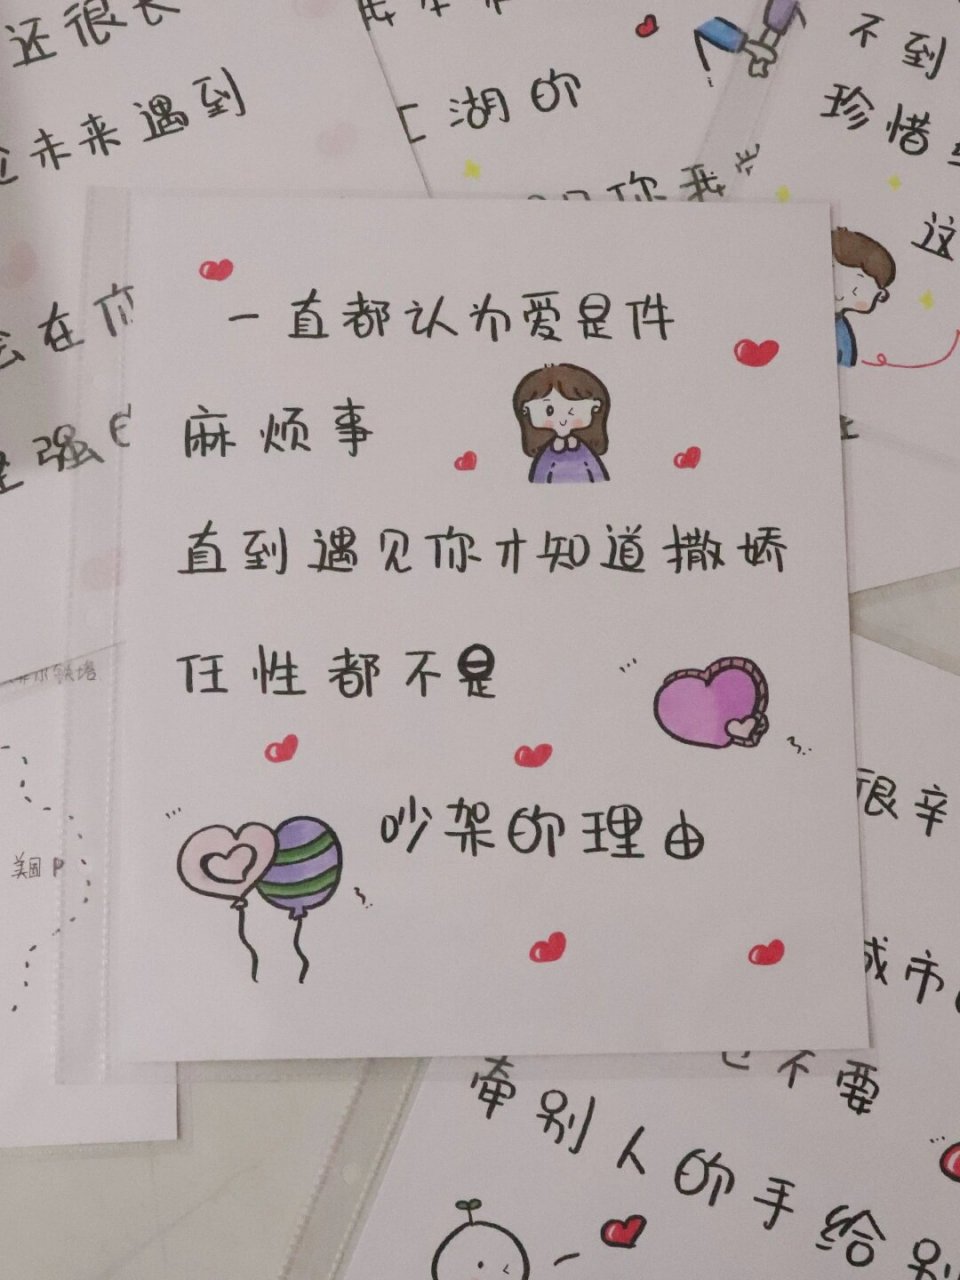 还很长
未来遇到
湖的
你我
不到
珍惜
这
在你
强
一直都认为爱是件
麻烦事
直到遇见你才知道撒娇
任性都不是
吵架的理由
铁塔
美国P
很辛
城市
也不要
牵别人的手给别